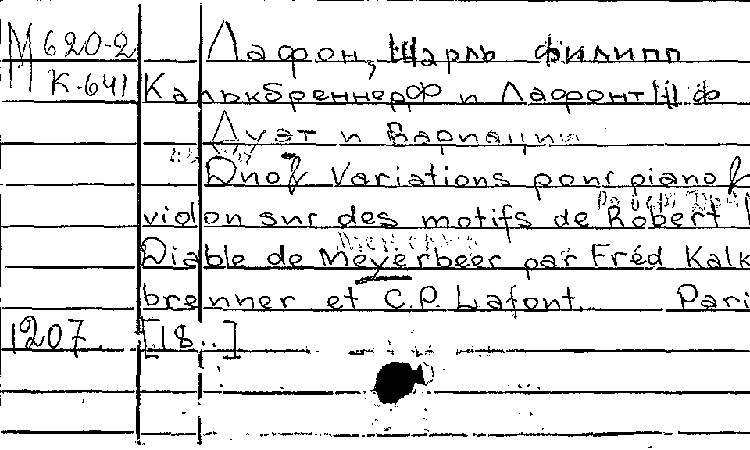 М 620-2 Лафон, Шарль Филипп
К-641 Калькбреннер Ф и Лафонт Ш Ф
Дуэт и Вариации
Duo & Variations pour piano &
violon sur des motifs de Robert l
Diable de Meyerbeer par Fréd Kalk
brenner et C.P. Lafont. Pari
1207. [18..]